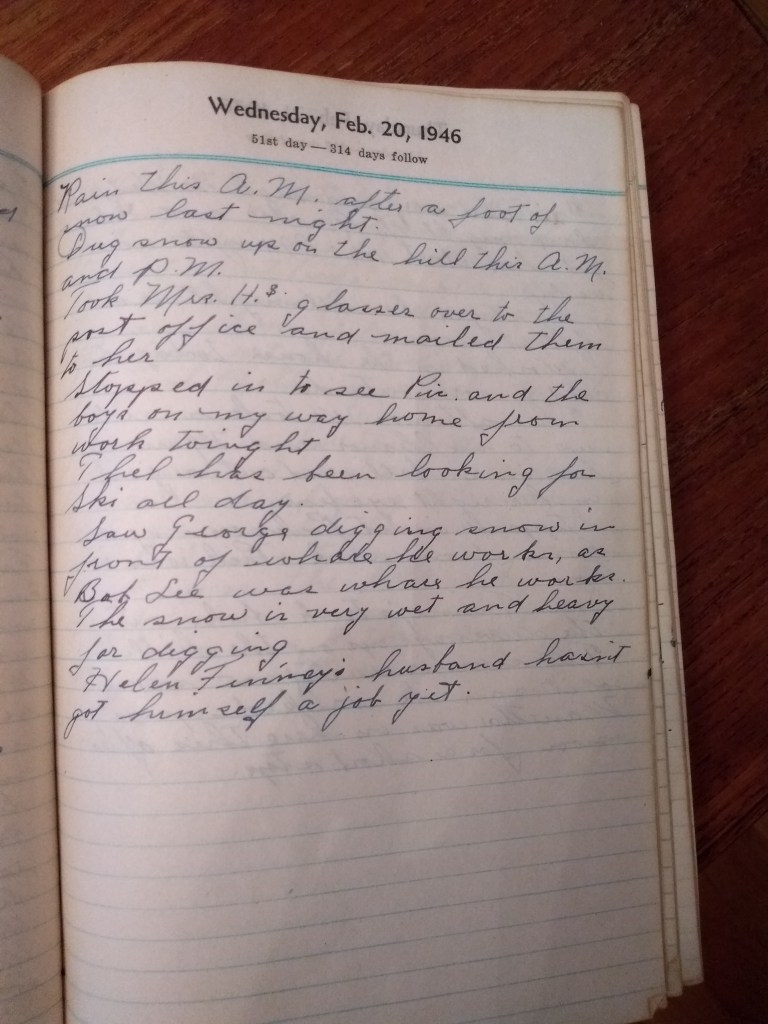 Wednesday, Feb. 20, 1946
51st day — 314 days follow
Rain this A. M. after a foot of
snow last night.
Dug snow up on the hill this A. M.
and P. M.
Took Mrs. H.s glasses over to the
post office and mailed them
to her
Stopped in to see and the
boys on my way home from
work tonight
has been looking for
Ski all day.
Saw George digging snow in
front of whare he works, as
Bob Lee was whare he works.
The snow is very wet and heavy
for digging
Helen Finney's husband hasn't
got himself a job yet.